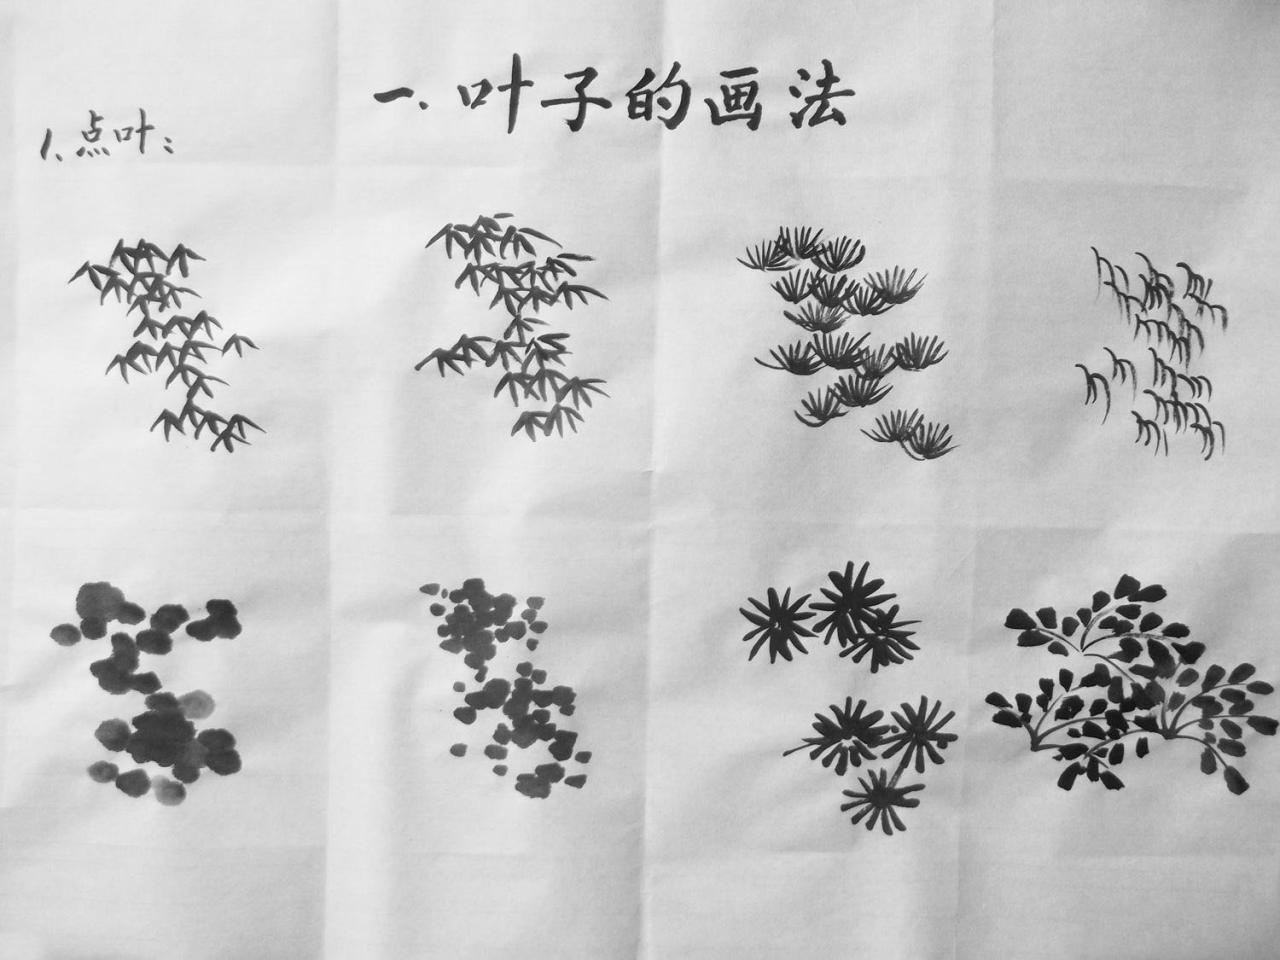 一.叶子的画法
1.点叶: